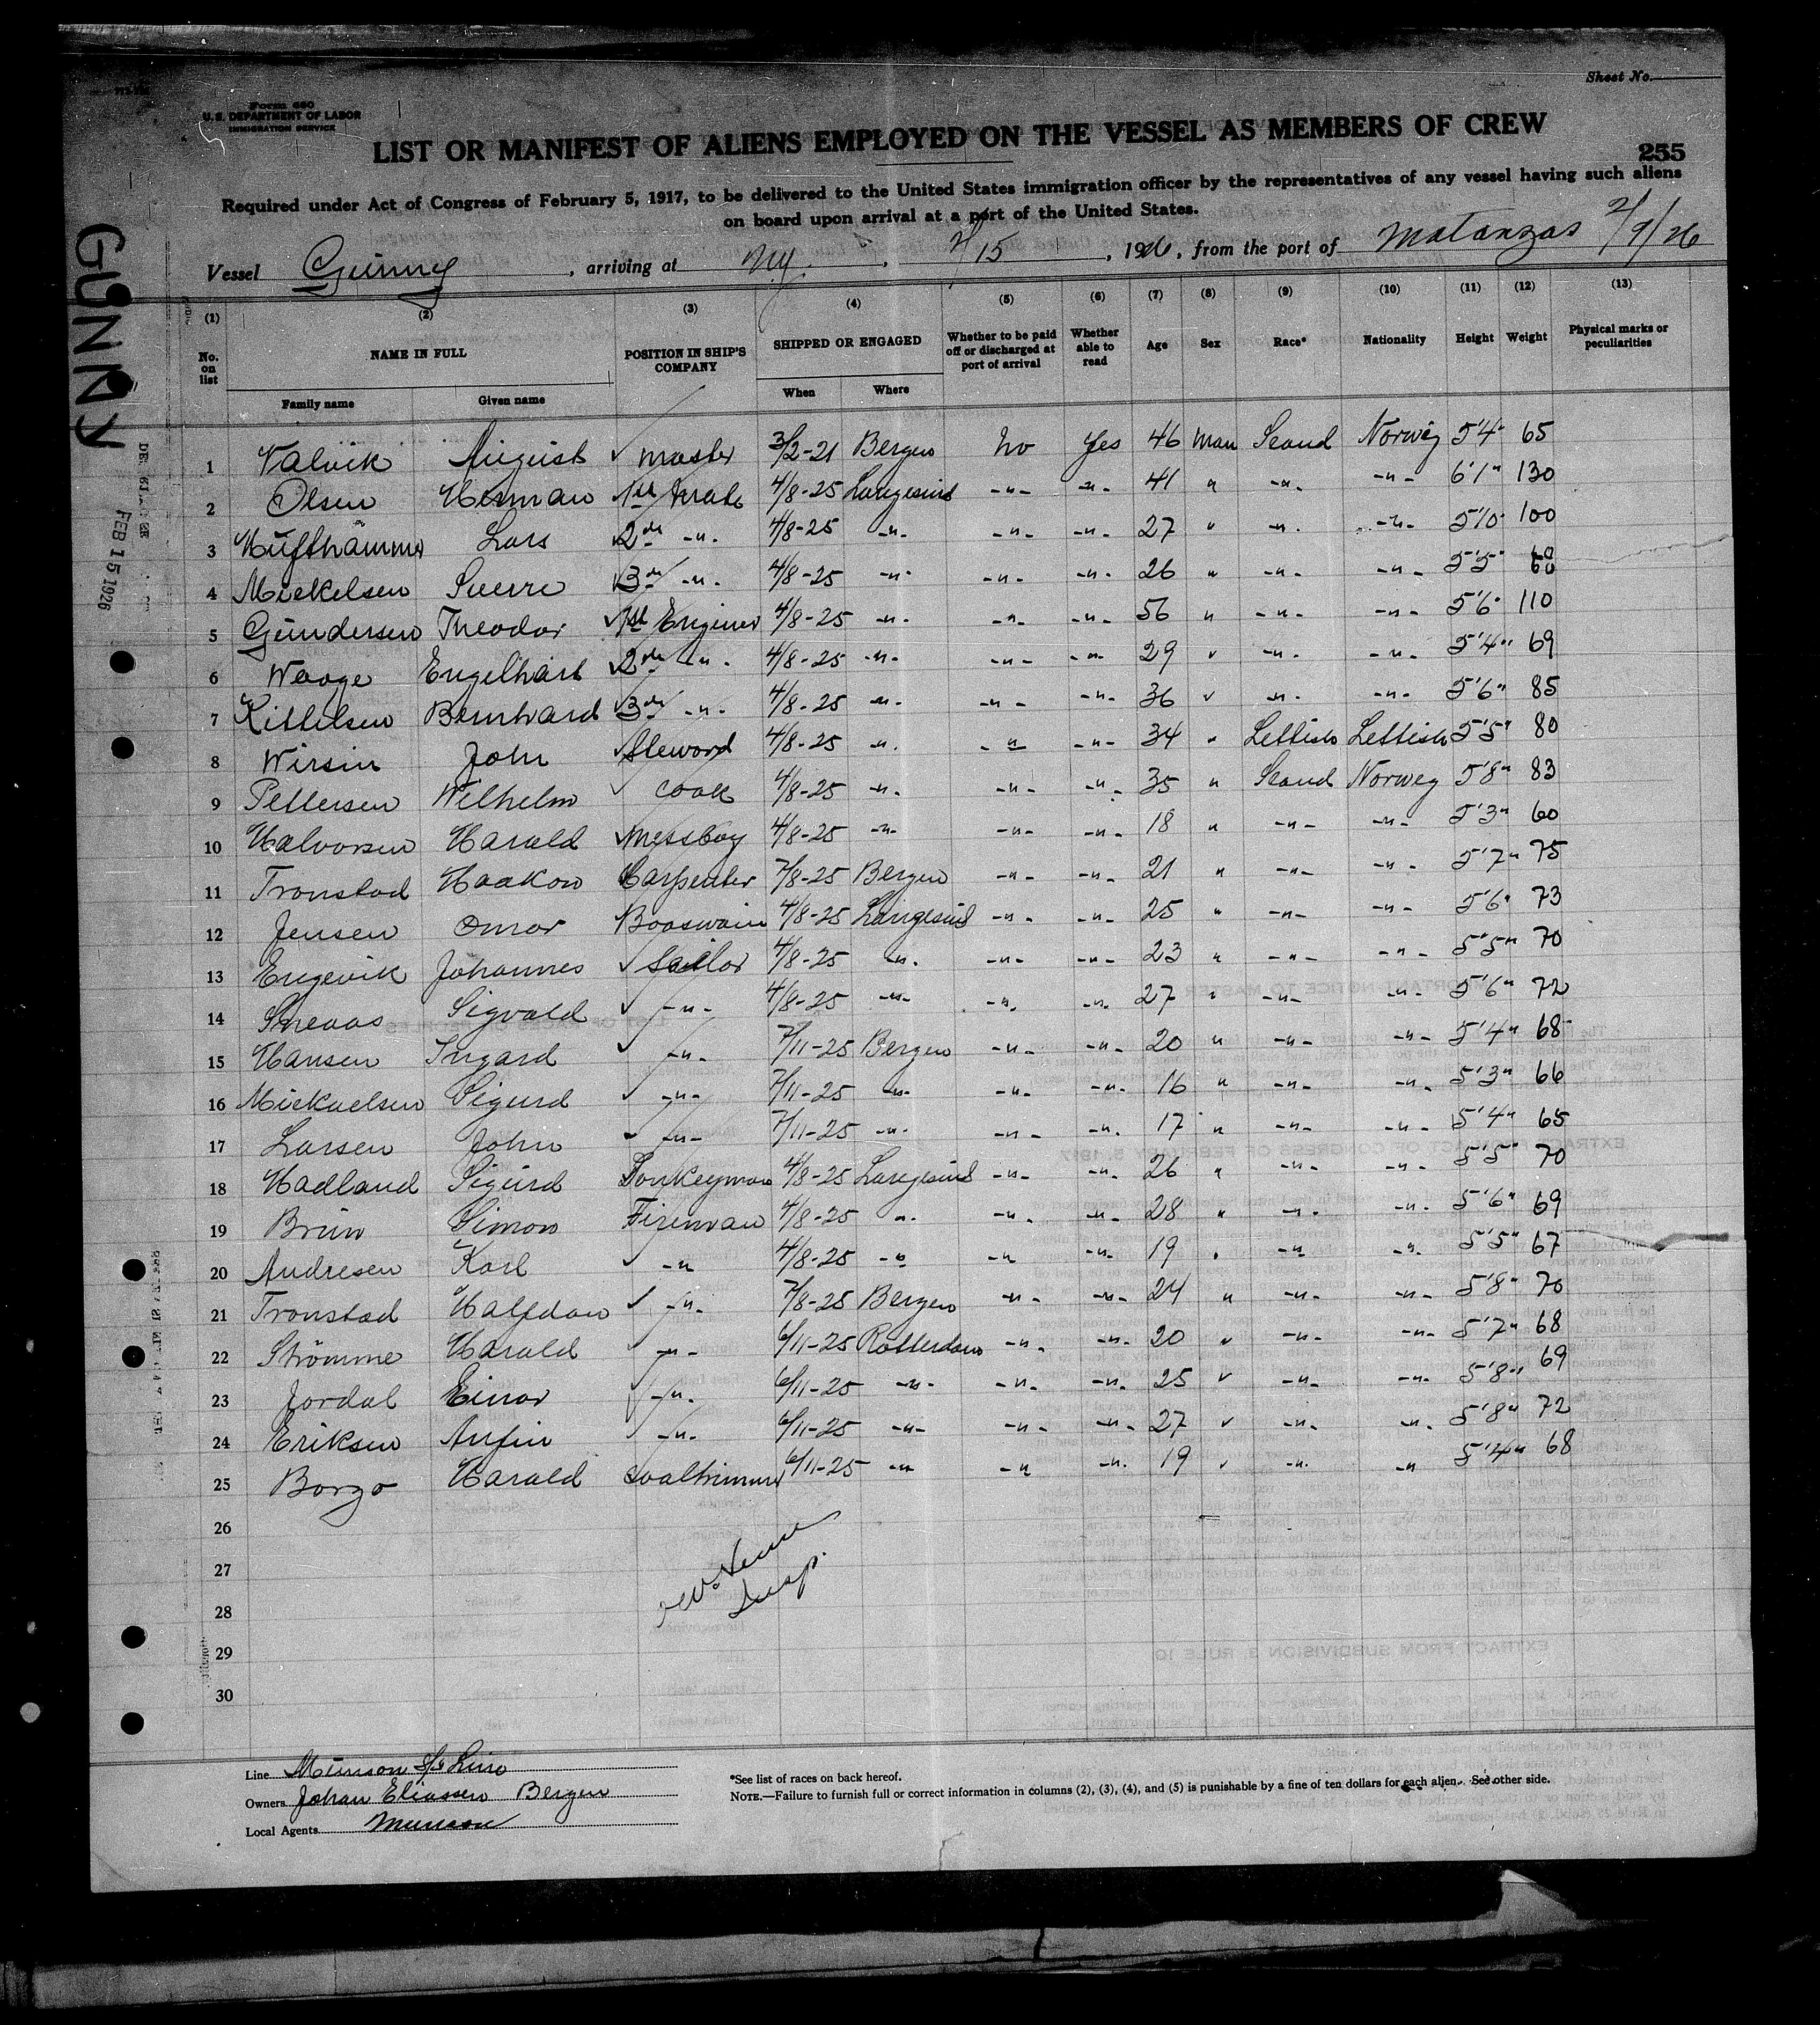 Sheet No.
Form 680
U. S. DEPARTMENT OF LABOR
IMMIGRATION SERVICE
LIST OR MANIFEST OF ALIENS EMPLOYED ON THE VESSEL AS MEMBERS OF CREW
255
Required under Act of Congress of February 5, 1917, to be delivered to the United States immigration officer by the representatives of any vessel having such aliens
on board upon arrival at a port of the United States.
Vessel Gunny, arriving at NY, 2/15, 1926, from the port of Matanzas 2/9/26
GUNNY
FEB 15 1926
(1) (2) (3) (4) (5) (6) (7) (8) (9) (10) (11) (12) (13)
No. on list NAME IN FULL POSITION IN SHIP'S COMPANY SHIPPED OR ENGAGED Whether to be paid off or discharged at port of arrival Whether able to read Age Sex Race* Nationality Height Weight Physical marks or peculiarities
Family name Given name When Where
1 Valvik August master 3/2-21 Bergen No Yes 46 Man Scand Norweg 5'4" 65
2 Olsen Herman 1st Mate 4/8-25 Langesund -"- -"- 41 " -"- -"- 6'1" 130
3 Hufthammer Lars 2nd -"- 4/8-25 -"- -"- -"- 27 " -"- -"- 5'10" 100
4 Mickelsen Sverre 3rd -"- 4/8-25 -"- -"- -"- 26 " -"- -"- 5'5"
5 Gundersen Theodor 1st Enginer 4/8-25 -"- -"- -"- 56 " -"- -"- 5'6" 110
6 Waage Engelhart 2nd -"- 4/8-25 -"- -"- -"- 29 " -"- -"- 5'4" 69
7 Kittelsen Bernhard 3rd -"- 4/8-25 -"- -"- -"- 36 " -"- -"- 5'6" 85
8 Wirsin John Steward 4/8-25 -"- -"- -"- 34 " Lettish Lettish 5'5" 80
9 Pettersen Wilhelm cook 4/8-25 -"- -"- -"- 35 " Scand Norweg 5'8" 83
10 Halvorsen Harald Messboy 4/8-25 -"- -"- -"- 18 " -"- -"- 5'3" 60
11 Tronstad Haakon Carpenter 7/8-25 Bergen -"- -"- 21 " -"- -"- 5'7" 75
12 Jensen Omar Booswain 4/8-25 Langesund -"- -"- 25 " -"- -"- 5'6" 73
13 Engevik Johannes Sailor 4/8-25 -"- -"- -"- 23 " -"- -"- 5'5" 70
14 Sneaas Sigvald -"- 4/8-25 -"- -"- -"- 27 " -"- -"- 5'6" 72
15 Hansen Ingard -"- 7/11-25 Bergen -"- -"- 20 " -"- -"- 5'4" 68
16 Mickaelsen Sigurd -"- 7/11-25 -"- -"- -"- 16 " -"- -"- 5'3" 66
17 Larsen John -"- 7/11-25 -"- -"- -"- 17 " -"- -"- 5'4" 65
18 Hadland Sigurd Donkeyman 4/8-25 Langesund -"- -"- 26 " -"- -"- 5'5" 70
19 Brun Simon Fireman 4/8-25 -"- -"- -"- 28 " -"- -"- 5'6" 69
20 Andresen Karl -"- 4/8-25 -"- -"- -"- 19 " -"- -"- 5'5" 67
21 Tronstad Halfdan -"- 7/8-25 Bergen -"- -"- 24 " -"- -"- 5'8" 70
22 Strömme Harald -"- 6/11-25 Rotterdam -"- -"- 20 " -"- -"- 5'7" 68
23 Jordal Einar -"- 6/11-25 -"- -"- -"- 25 " -"- -"- 5'8" 69
24 Eriksen Anfin -"- 6/11-25 -"- -"- -"- 27 " -"- -"- 5'8" 72
25 Borgo Harald Coaltrimmer 6/11-25 -"- -"- -"- 19 " -"- -"- 5'4" 68
26
27
28
29
30
Insp.
Line Munson S/S Line
Owners Johan Eliassen Bergen
Local Agents Munson
*See list of races on back hereof.
NOTE.—Failure to furnish full or correct information in columns (2), (3), (4), and (5) is punishable by a fine of ten dollars for each alien. See other side.